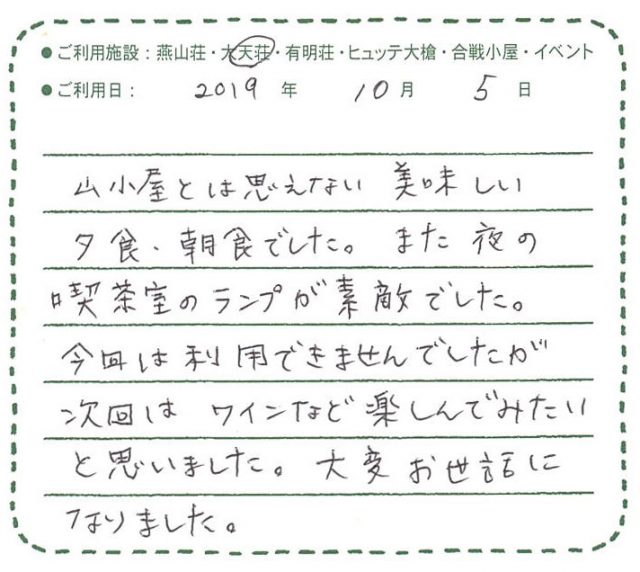 ●ご利用施設：燕山荘・大天荘・有明荘・ヒュッテ大槍・合戦小屋・イベント
●ご利用日： 2019 年 10 月 5 日
山小屋とは思えない 美味しい
夕食、朝食でした。また 夜の
喫茶室のランプが素敵でした。
今回は利用できませんでしたが
次回は ワインなど楽しんでみたい
と思いました。大変お世話に
なりました。